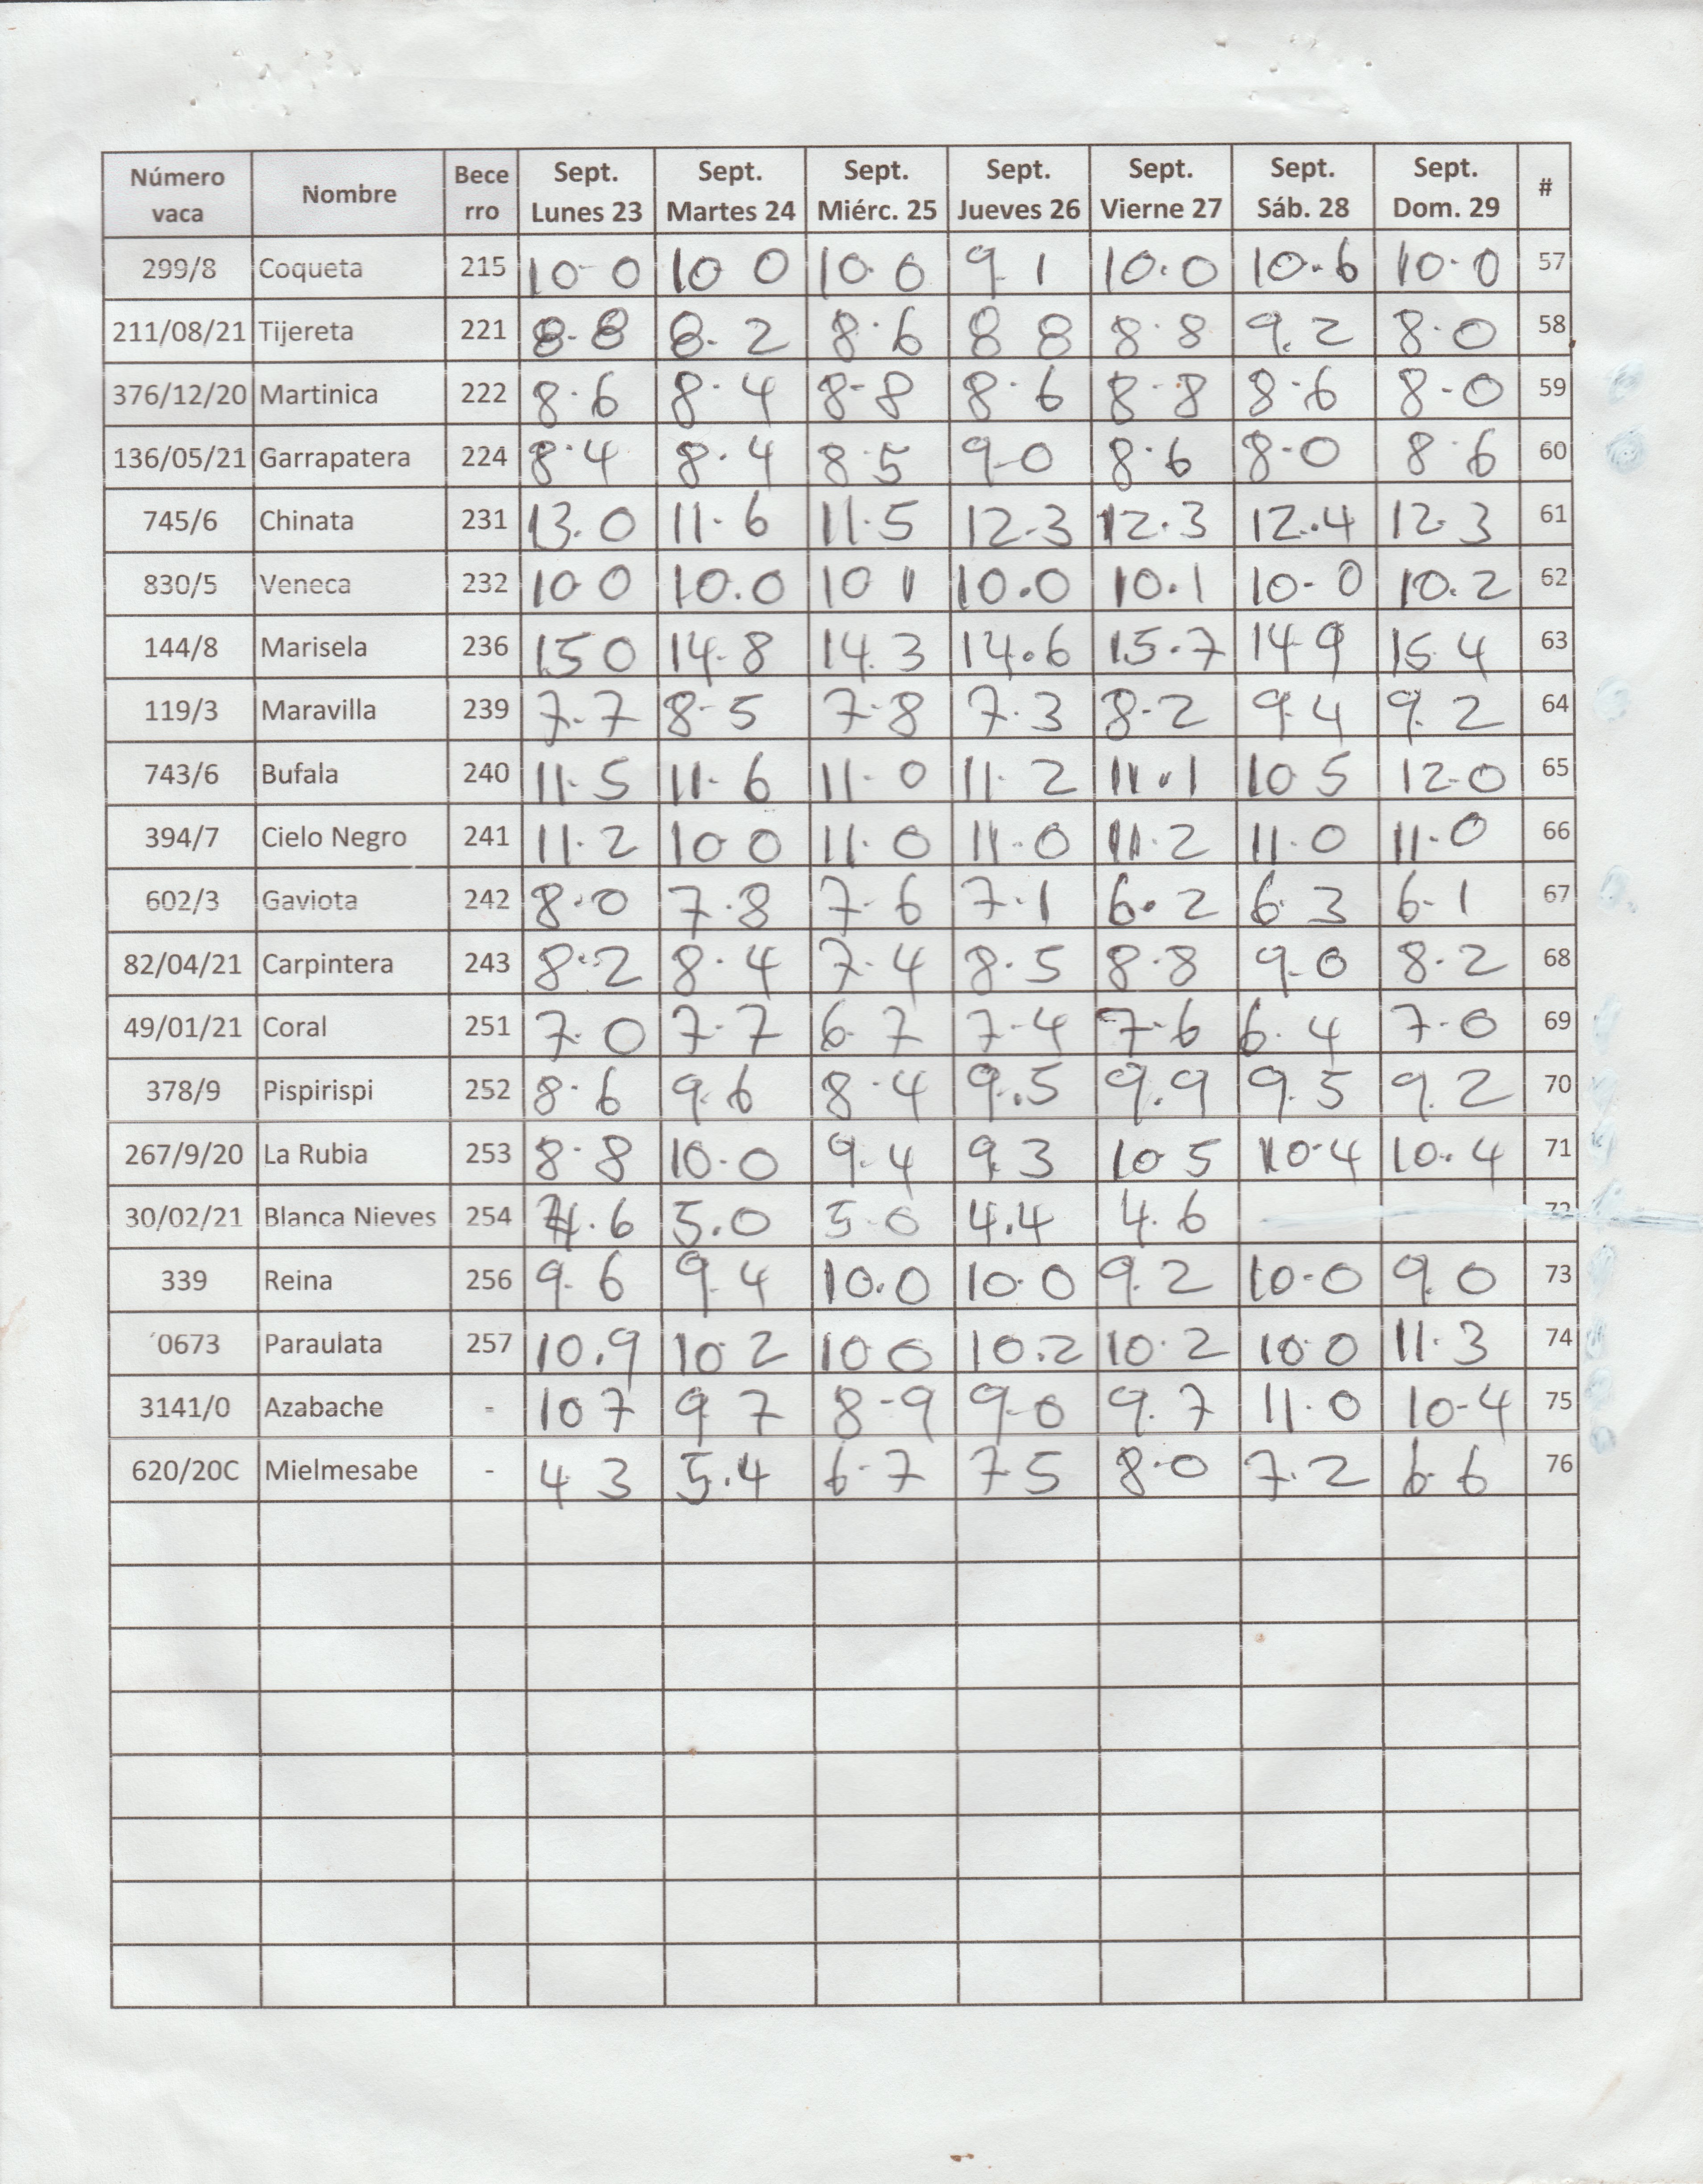 Número vaca Nombre Bece rro Sept. Lunes 23 Sept. Martes 24 Sept. Miérc. 25 Sept. Jueves 26 Sept. Vierne 27 Sept. Sáb. 28 Sept. Dom. 29 #
299/8 Coqueta 215 10-0 10 0 10.0 9 1 10.0 10.6 10.0 57
211/08/21 Tijereta 221 8-8 8.2 8.6 8 8 8.8 9.2 8.0 58
376/12/20 Martinica 222 8.6 8.4 8-8 8.6 8-8 8.6 8-0 59
136/05/21 Garrapatera 224 8.4 8.4 8.5 9-0 8.6 8-0 8.6 60
745/6 Chinata 231 13.0 11.6 11.5 12.3 12.3 12.4 12.3 61
830/5 Veneca 232 10 0 10.0 10 1 10.0 10.1 10-0 10.2 62
144/8 Marisela 236 15 0 14.8 14.3 14.6 15.7 14 9 15.4 63
119/3 Maravilla 239 7.7 8-5 7.8 7.3 8-2 9.4 9.2 64
743/6 Bufala 240 11.5 11.6 11.0 11.2 11.1 10 5 12-0 65
394/7 Cielo Negro 241 11.2 10 0 11.0 11.0 11.2 11.0 11.0 66
602/3 Gaviota 242 8.0 7.8 7.6 7.1 6.2 6.3 6.1 67
82/04/21 Carpintera 243 8.2 8.4 7.4 8.5 8.8 9.0 8.2 68
49/01/21 Coral 251 7.0 7.7 6.7 7-4 7.6 6.4 7.0 69
378/9 Pispirispi 252 8.6 9.6 8.4 9.5 9.9 9.5 9.2 70
267/9/20 La Rubia 253 8.8 10.0 9.4 9.3 10 5 10.4 10.4 71
30/02/21 Blanca Nieves 254 4.6 5.0 5.0 4.4 4.6 72
339 Reina 256 9.6 9.4 10.0 10.0 9.2 10-0 9.0 73
0673 Paraulata 257 10.9 10 2 10 0 10.2 10.2 10.0 11.3 74
3141/0 Azabache - 10 7 9 7 8-9 9-0 9.7 11.0 10-4 75
620/20C Mielmesabe - 4 3 5.4 6.7 7 5 8.0 7.2 6.6 76